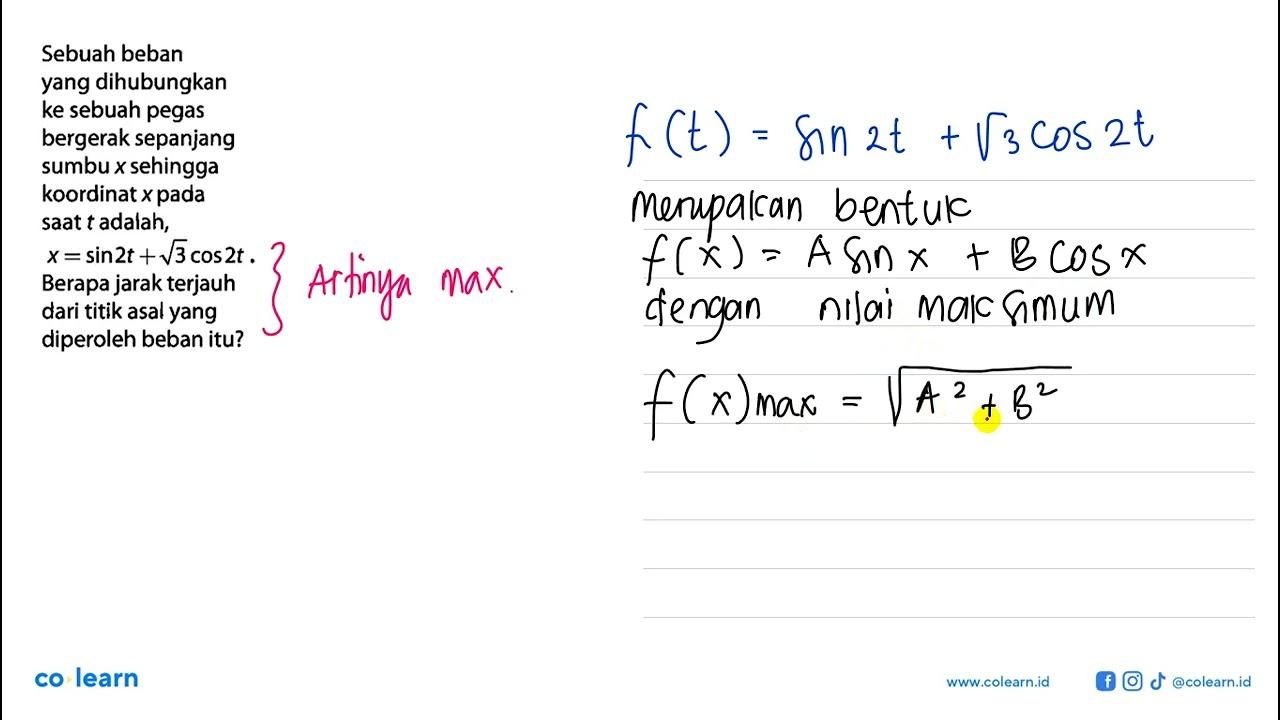 Sebuah beban
yang dihubungkan
ke sebuah pegas
bergerak sepanjang
sumbu x sehingga
koordinat x pada
saat t adalah,
x = sin2t + √3 cos2t .
Berapa jarak terjauh
dari titik asal yang
diperoleh beban itu?
Artinya max.
f(t) = sin 2t + √3 cos 2t
merupakan bentuk
f(x) = A sin x + B cos x
dengan nilai maksimum
f(x) max = √A² + B²
co learn
www.colearn.id
@colearn.id